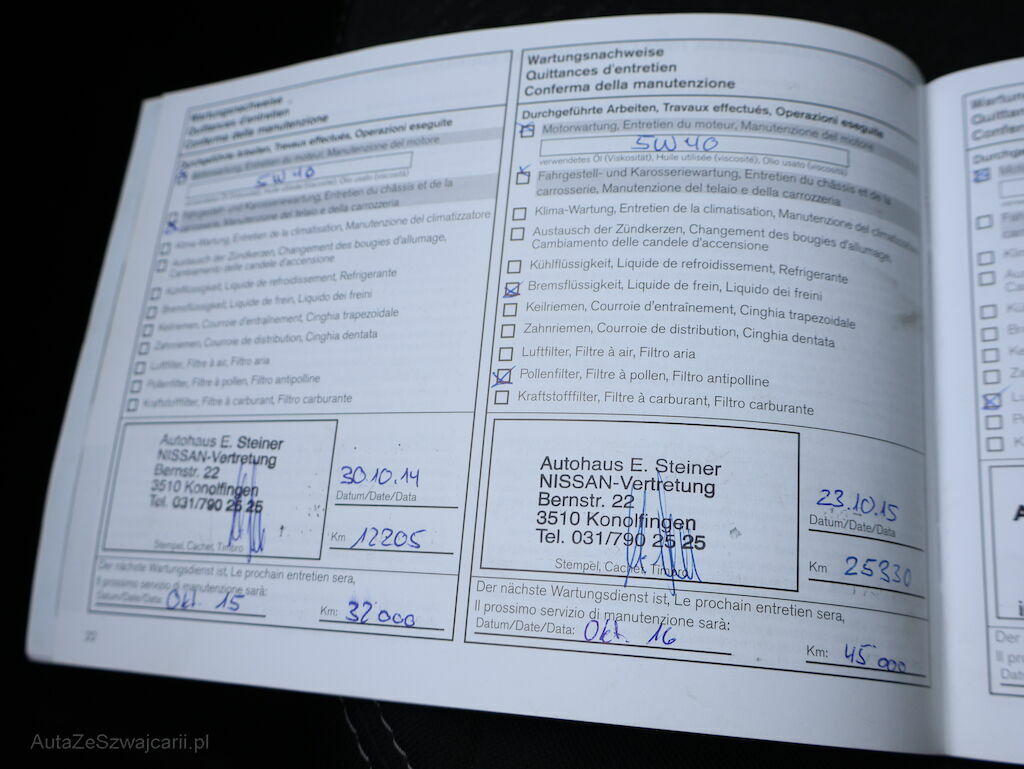 Wartungsnachweise
Quittances d'entretien
Conferma della manutenzione
Durchgeführte Arbeiten, Travaux effectués, Operazioni eseguite
Motorwartung, Entretien du moteur, Manutenzione del motore
5W40
verwendetes Öl (Viskosität), Huile utilisée (viscosité), Olio usato (viscosità)
Fahrgestell- und Karosseriewartung, Entretien du châssis et de la
carrosserie, Manutenzione del telaio e della carrozzeria
Klima-Wartung, Entretien de la climatisation, Manutenzione del climatizzatore
Austausch der Zündkerzen, Changement des bougies d'allumage,
Cambiamento delle candele d'accensione
Kühlflüssigkeit, Liquide de refroidissement, Refrigerante
Bremsflüssigkeit, Liquide de frein, Liquido dei freini
Keilriemen, Courroie d'entraînement, Cinghia trapezoidale
Zahnriemen, Courroie de distribution, Cinghia dentata
Luftfilter, Filtre à air, Filtro aria
Pollenfilter, Filtre à pollen, Filtro antipolline
Kraftstofffilter, Filtre à carburant, Filtro carburante
Autohaus E. Steiner
NISSAN-Vertretung
Bernstr. 22
3510 Konolfingen
Tel. 031/790 25 25
Stempel, Cachet, Timbro
30.10.14
Datum/Date/Data
Km 12205
Der nächste Wartungsdienst ist, Le prochain entretien sera,
Il prossimo servizio di manutenzione sarà:
Datum/Date/Data: Okt. 15
Km: 32'000
22
Wartungsnachweise
Quittances d'entretien
Conferma della manutenzione
Durchgeführte Arbeiten, Travaux effectués, Operazioni eseguite
Motorwartung, Entretien du moteur, Manutenzione del motore
5W40
verwendetes Öl (Viskosität), Huile utilisée (viscosité), Olio usato (viscosità)
Fahrgestell- und Karosseriewartung, Entretien du châssis et de la
carrosserie, Manutenzione del telaio e della carrozzeria
Klima-Wartung, Entretien de la climatisation, Manutenzione del climatizzatore
Austausch der Zündkerzen, Changement des bougies d'allumage,
Cambiamento delle candele d'accensione
Kühlflüssigkeit, Liquide de refroidissement, Refrigerante
Bremsflüssigkeit, Liquide de frein, Liquido dei freini
Keilriemen, Courroie d'entraînement, Cinghia trapezoidale
Zahnriemen, Courroie de distribution, Cinghia dentata
Luftfilter, Filtre à air, Filtro aria
Pollenfilter, Filtre à pollen, Filtro antipolline
Kraftstofffilter, Filtre à carburant, Filtro carburante
Autohaus E. Steiner
NISSAN-Vertretung
Bernstr. 22
3510 Konolfingen
Tel. 031/790 25 25
Stempel, Cachet, Timbro
23.10.15
Datum/Date/Data
Km 25330
Der nächste Wartungsdienst ist, Le prochain entretien sera,
Il prossimo servizio di manutenzione sarà:
Datum/Date/Data: Okt. 16
Km: 45'000
AutaZeSzwajcarii.pl